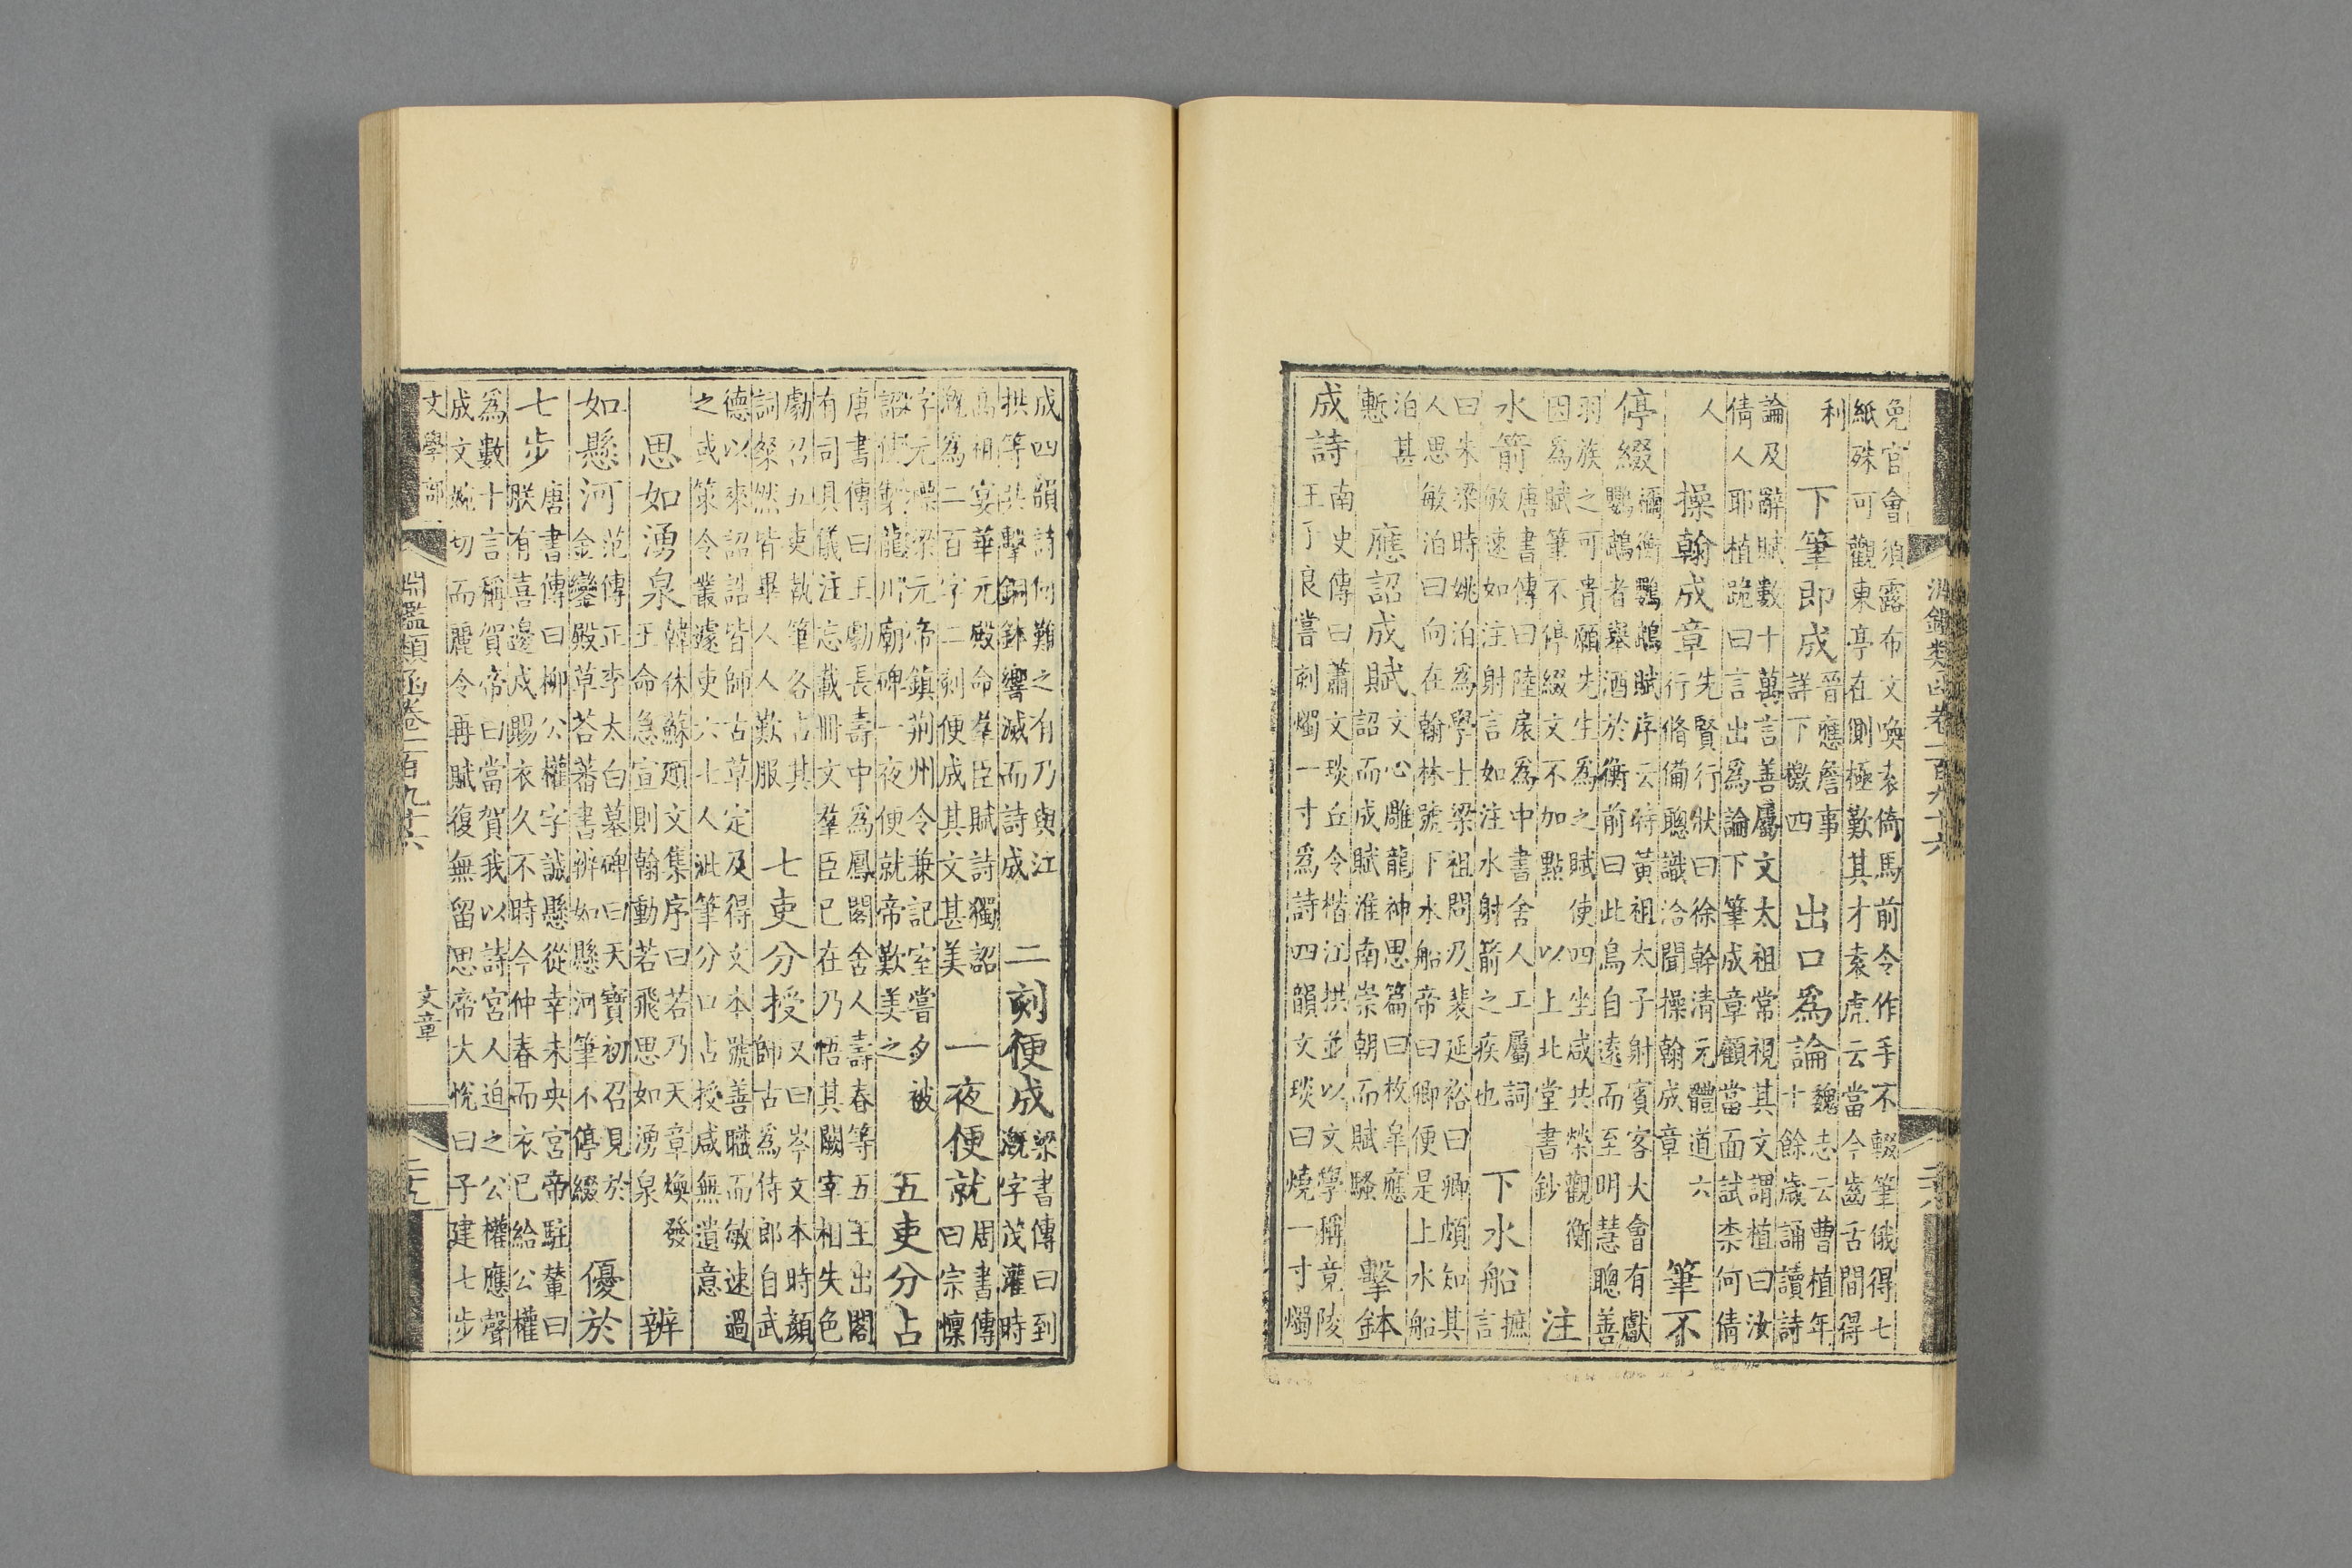 淵鑑類函卷一百九十六 二六
免官會須露布文喚袁倚馬前令作手不輟筆俄得七
紙殊可觀東亭在側極歎其才袁虎云當令齒舌間得
利 下筆即成 晉應詹事詳下檄四 出口爲論 魏志云曹植年十餘歲誦讀詩
論及辭賦數十萬言善屬文太祖常視其文謂植曰汝
倩人耶植跪曰言出爲論下筆成章顧當面試柰何倩
人 操翰成章 先賢行狀曰徐幹清元體道六行脩備聰識洽聞操翰成章 筆不
停綴 禰衡鸚鵡賦序云時黃祖太子射賓客大會有獻鸚鵡者舉酒於衡前曰此鳥自遠而至明慧聰善
羽族之可貴願先生爲之賦使四坐咸共榮觀衡因爲賦筆不停綴文不加點 以上北堂書鈔 注
水箭 唐書傳曰陸扆爲中書舍人工屬詞敏速如注射言如注水射箭之疾也 下水船 摭言
曰朱梁時姚洎爲學士梁祖問乃裴延裕曰卿頗知其
人思敏洎曰向在翰林號下水船帝曰卿便是上水船
洎甚慙 應詔成賦 文心雕龍神思篇曰枚皋應詔而成賦淮南崇朝而賦騷 擊鉢
成詩 南史傳曰蕭文琰丘令楷江拱並以文學稱竟陵王子良嘗刻燭一寸爲詩四韻文琰曰燒一寸燭
成四韻詩何難之有乃與江拱等共擊銅鉢響滅而詩成 二刻便成 梁書傳曰到漑字茂灌時
高祖宴華元殿命羣臣賦詩獨詔漑爲二百字二刻便成其文甚美 一夜便就 周書傳曰宗懍
字元懍梁元帝鎮荆州令兼記室嘗夕被詔俾製龍川廟碑一夜便就帝歎美之 五吏分占
唐書傳曰王勮長壽中爲鳳閣舍人壽春等五王出閣
有司具儀注忘載冊文羣臣已在乃悟其闕宰相失色
勮召五吏執筆各占其詞粲然皆畢人人歎服 七吏分授 又曰岑文本時顏師古爲侍郎自武
德以來詔誥皆師古草定及得文本號善職而敏速過
之或策令叢遽吏六七人泚筆分口占授咸無遺意
思如湧泉 韓休蘇頲文集序曰若乃天章煥發王命急宣則翰動若飛思如湧泉 辨
如懸河 范傳正李太白墓碑曰天寶初召見於金鑾殿草荅蕃書辨如懸河筆不停綴 優於
七步 唐書傳曰柳公權字誠懸從幸未央宮帝駐輦曰朕有喜邊戍賜衣久不時今仲春而衣已給公權
爲數十言稱賀帝曰當賀我以詩宮人迫之公權應聲
成文婉切而麗令再賦復無留思帝大悅曰子建七步
文學部 淵鑑類函卷一百九十六 文章 二五